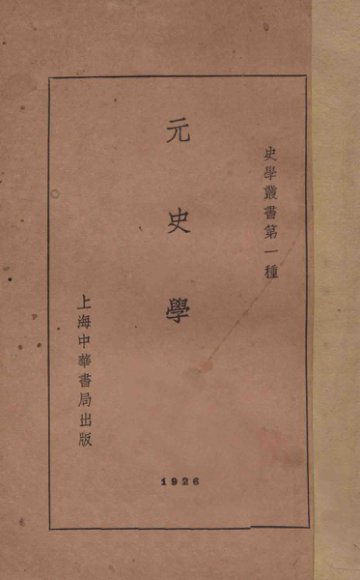 史學叢書第一種
元史學
上海中華書局出版
1926